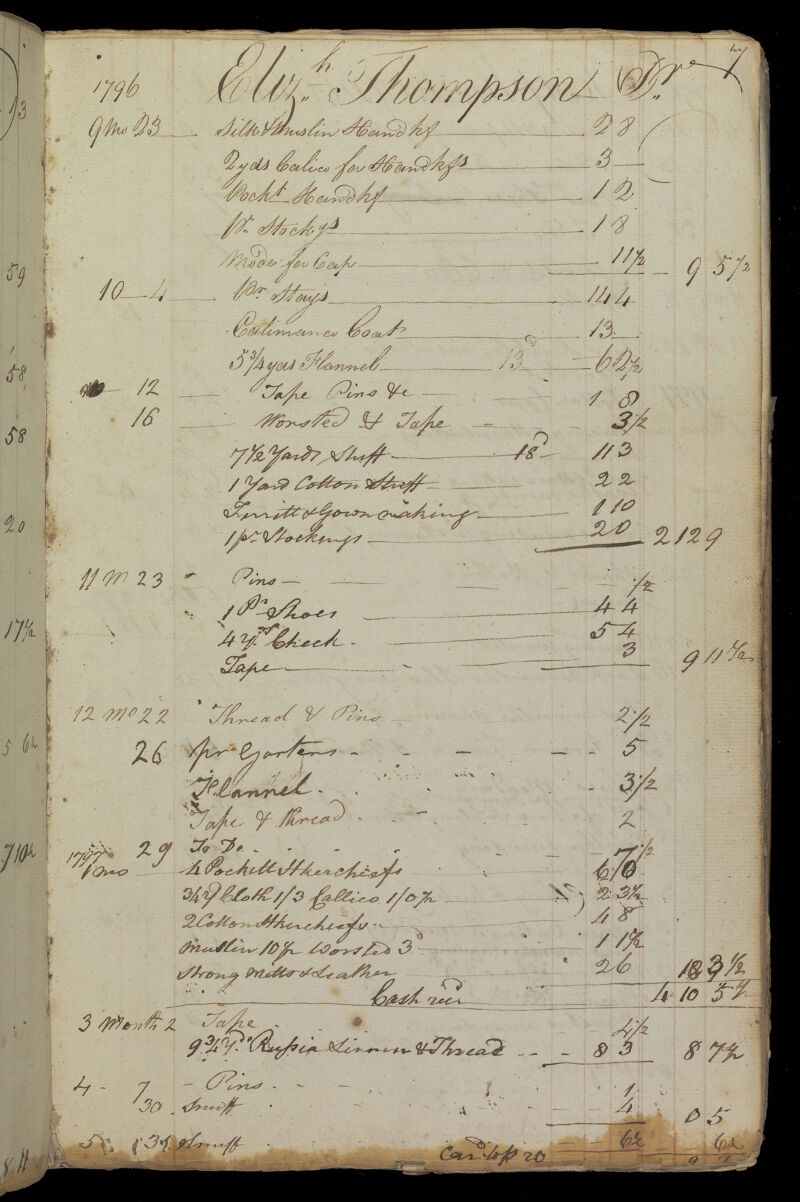 3
59
58
58
20
17½
5 6½
7 10½
8 11
7
1796 Elizh Thompson Dr
9 Mo 23 Silk & Muslin Handkf 2 8
2 yds Calico for Handkfs 3 —
Pockt Handkf 1 2
Pr Stockgs 1 8
Mode for Cap 11½ 9 5½
10 4 Pr Stays 14 4
Calimanco Coat 13
5¾ yds Flannel 13d 6 2½
12 Tape Pins &c 1 8
16 Worsted & Tape 3½
7½ Yards Stuff 18d 11 3
1 Yard Cotton Stuff 2 2
Ferritt & Gown making 1 10
1 pr Stockings 2 0 2 12 9
11 M 23 Pins ½
1 Pr Shoes 4 4
4 yds Check 5 4
Tape 3 9 11½
12 Mo 22 Thread & Pins 2½
26 pr Garters 5
Flannel 3½
Tape & thread 2
29 To Do 7½
1797
1 mo 4 Pockett Hkercheifs 6 10
3/4 yd Cloth 1/3 Callico 1/0½ 2 3½
2 Cotton Hkercheifs 4 8
Muslin 10½ Worsted 3d 1 1½
Strong Mitts & Leather 2 6 18 9½
Cash recd 4 10 5½
3 Month 2 Tape 4½
9¾ Yds Russia Linnen & Thread 8 3 8 7½
4 7 Pins 1
30 Snuff 4 0 5
5 31 Snuff 6½ 6½
Card to fo 20 9 7